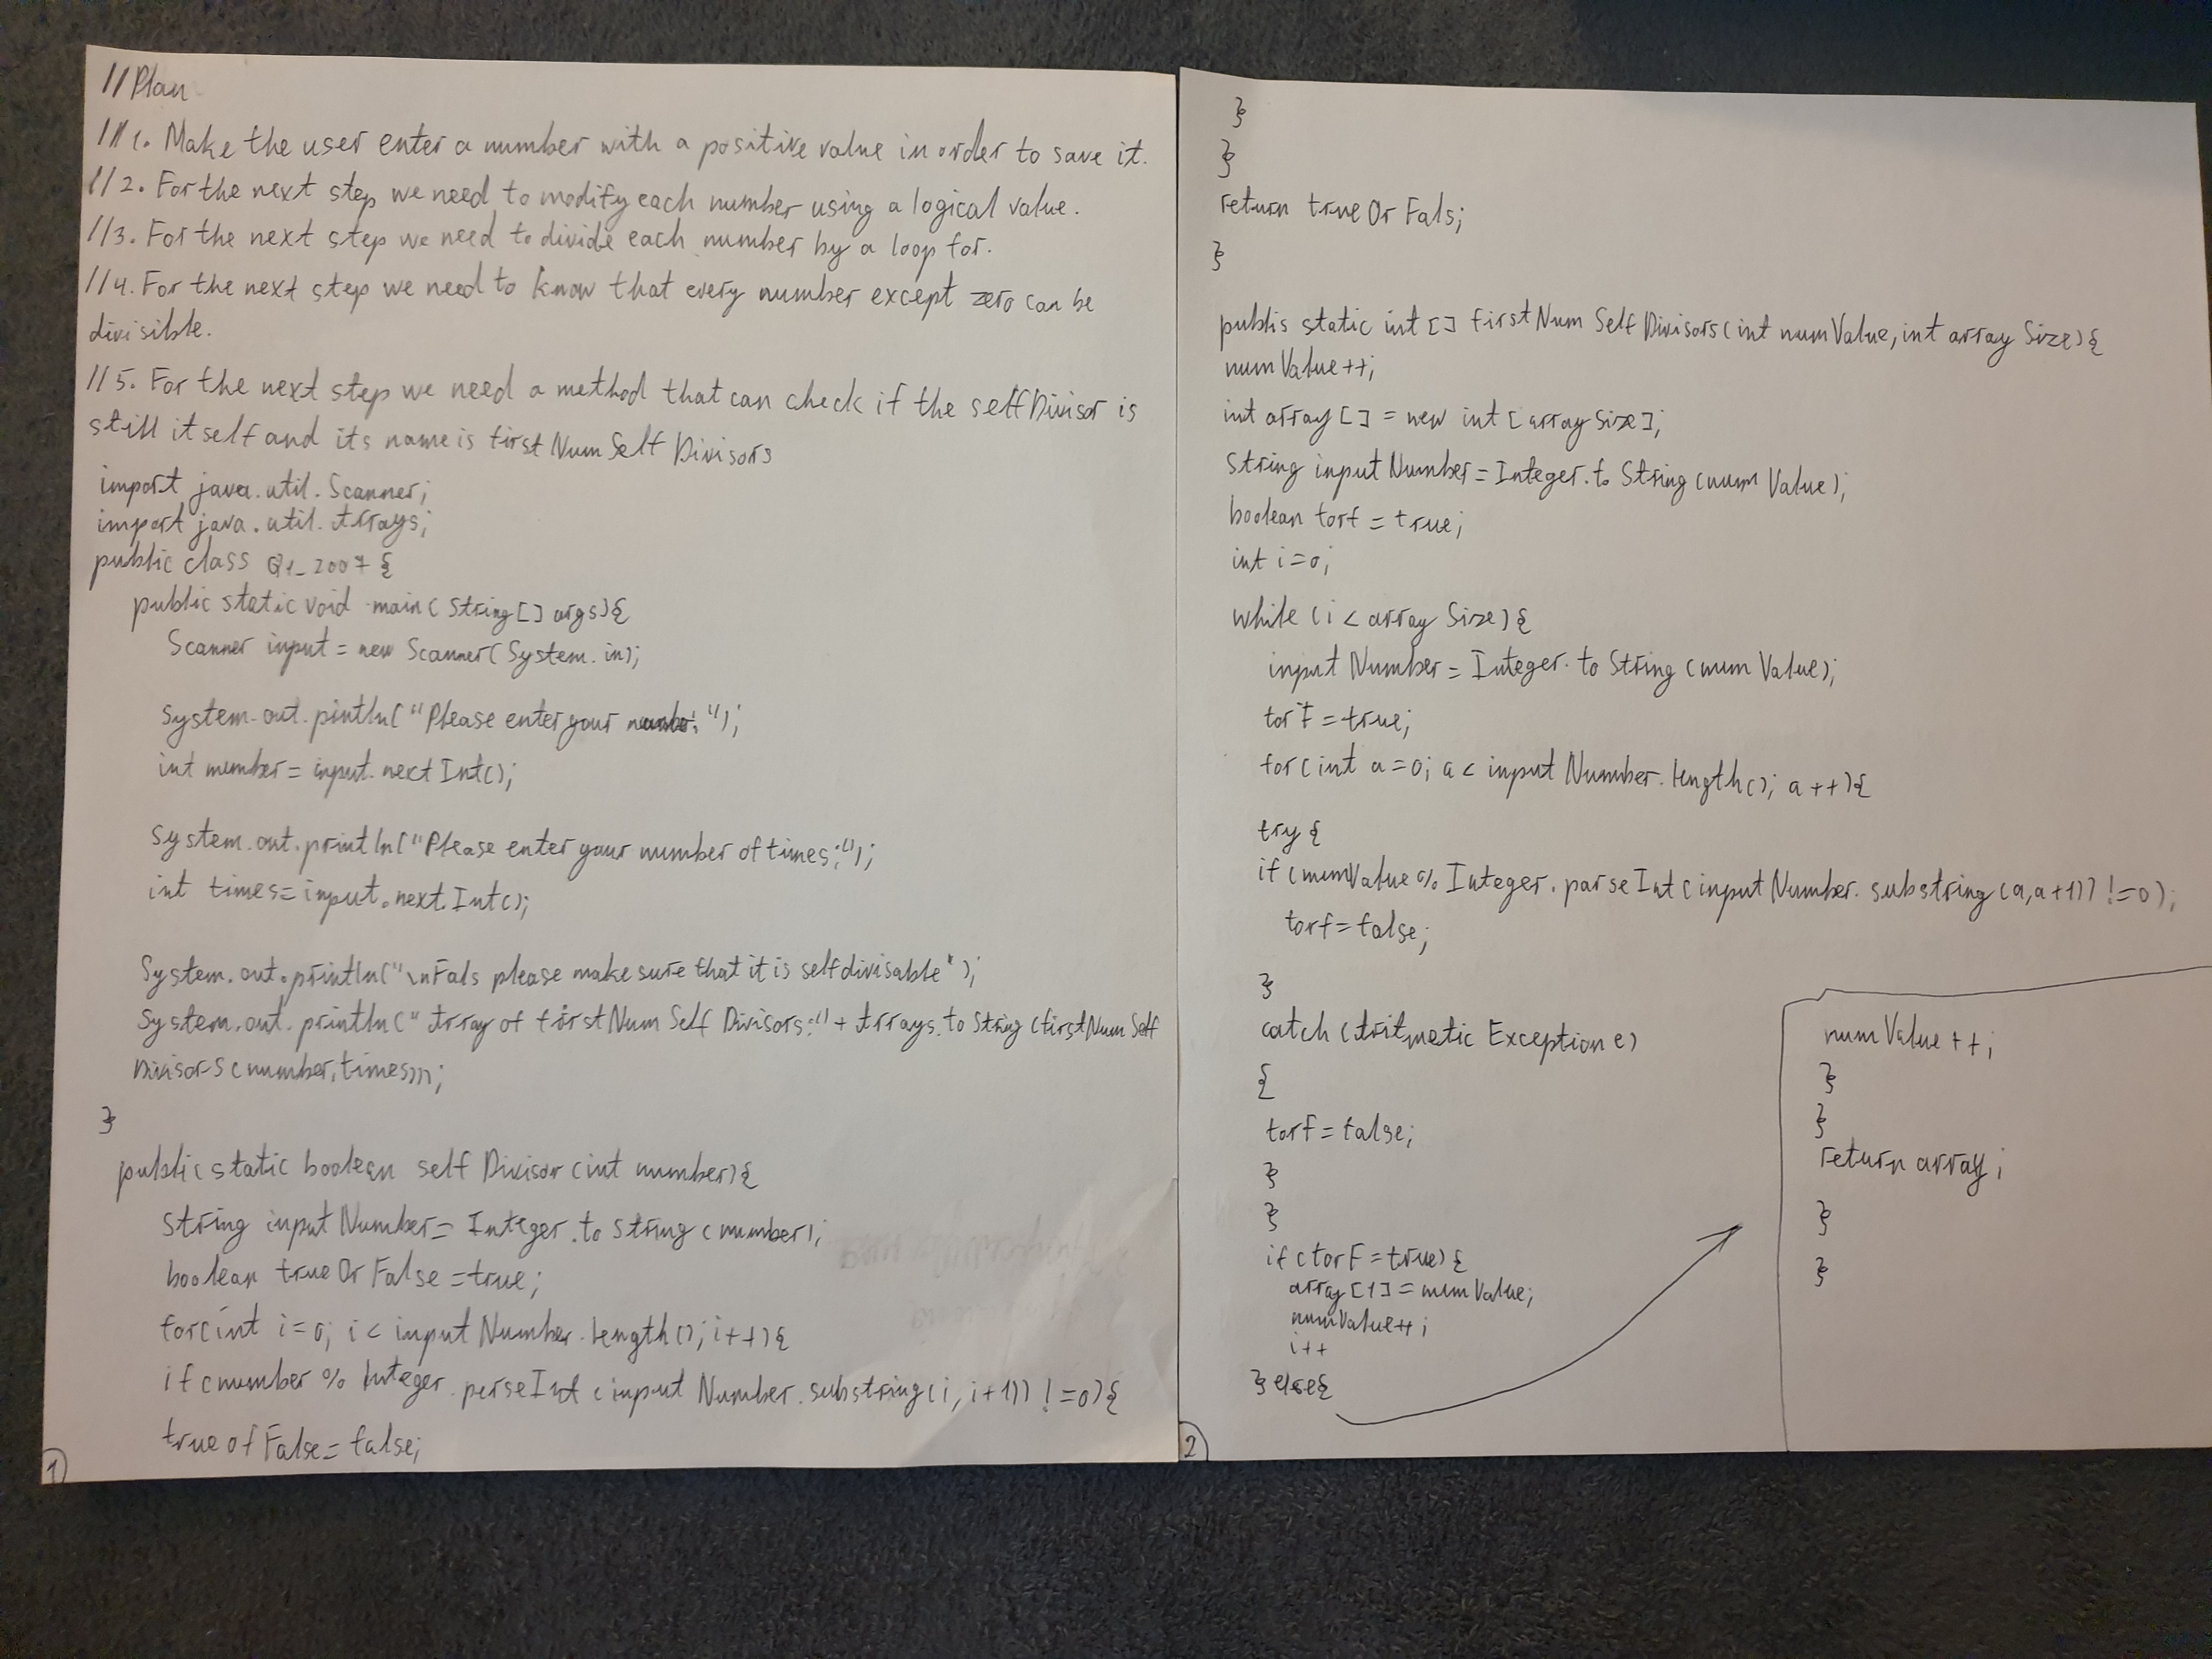 //Plan
//1. Make the user enter a number with a positive value in order to save it.
//2. For the next step we need to modify each number using a logical value.
//3. For the next step we need to divide each number by a loop for.
//4. For the next step we need to know that every number except zero can be
divisible.
//5. For the next step we need a method that can check if the selfDivisor is
still itself and its name is firstNumSelfDivisors
import java.util.Scanner;
import java.util.Arrays;
public class Q1_2007{
public static void main(String[] args){
Scanner input = new Scanner(System.in);
System.out.pintln("Please enter your number: ");
int number = input.nextInt();
System.out.println("Please enter your number of times:");
int times = input.nextInt();
System.out.println("\nFals please make sure that it is selfdivisable");
System.out.println("Array of firstNumSelfDivisors:" + Arrays.toString(firstNumSelf
Divisors(number,times)));
}
public static boolean selfDivisor(int number){
String inputNumber = Integer.toString(number);
boolean trueOrFalse = true;
for(int i=0; i < inputNumber.length(); i++){
if(number % Integer.parseInt(inputNumber.substring(i, i+1)) != 0){
trueofFalse = false;
1
}
}
return trueOrFals;
}
publis static int[] firstNumSelfDivisors(int numValue, int arraySize){
numValue++;
int array[] = new int[arraySize];
String inputNumber = Integer.toString(numValue);
boolean torf = true;
int i=0;
while (i < arraySize){
inputNumber = Integer.toString(numValue);
torf = true;
for(int a=0; a < inputNumber.length(); a++){
try{
if(numValue % Integer.parseInt(inputNumber.substring(a,a+1)) !=0);
torf = false;
}
catch (AritmeticException e)
{
torf = false;
}
}
if(torF = true){
array[1] = numValue;
numValue++;
i++
}else{
2
numValue++;
}
}
return array;
}
}